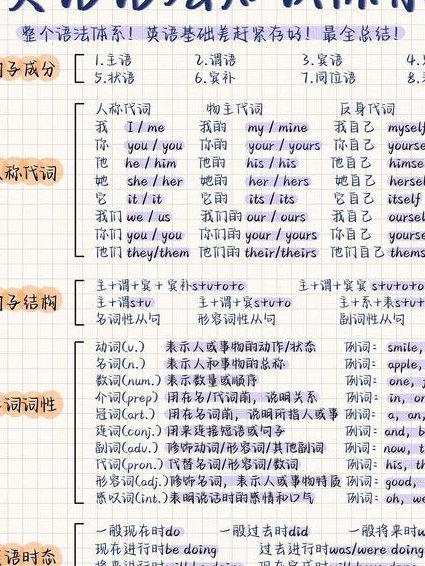 整个语法体系！英语基础差赶紧存好！最全总结！
子成分
1.主语 2.谓语 3.宾语
5.状语 6.宾补 7.同位语
人称代词
人称代词 物主代词 反身代词
我 I / me 我的 my / mine 我自己 myself
你 you / you 你的 your / yours 你自己
他 he / him 他的 his / his 他自己
她 she / her 她的 her / hers 她自己
它 it / it 它的 its / its 它自己 itself
我们 we / us 我们的 our / ours 我们自己
你们 you / you 你们的 your / yours 你们自己
他们 they/them 他们的 their/theirs 他们自己
子结构
主+谓+宾+宾补s+v+o+c 主+谓+宾+宾
主+谓s+v 主+谓+宾s+v+o 主+系+表
名词性从句 形容词性从句 副词性从句
词词性
动词(v.) 表示人或事物的动作/状态 例词: smile,
名词(n.) 表示人和事物的总称 例词: apple,
数词(num.) 表示数量或顺序 例词: one,
介词(prep) 用在名/代词前，说明关系 例词: in,
冠词(art.) 用在名词前，说明所指人或事 例词: a, an,
连词(conj.) 用来连接短语或句子 例词: and,
副词(adv.) 修饰动词/形容词/其他副词 例词: now,
代词(pron.) 代替名词/形容词/数词 例词: his,
形容词(adj.)修饰名词，表示人或事物特质 例词: good,
感叹词(int.)表明说话时的感情和口气 例词: oh,
语时态
一般现在时do 一般过去时did 一般将来时
现在进行时be doing 过去进行时was/were doing